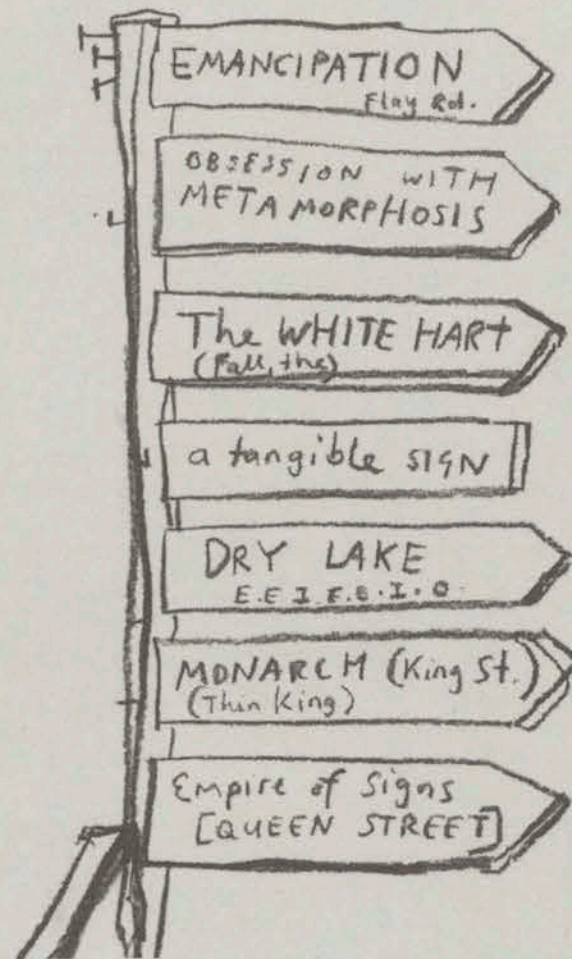 EMANCIPATION
Flay Rd.
OBSESSION WITH
METAMORPHOSIS
The WHITE HART
(Fall, the)
a tangible SIGN
DRY LAKE
E.E I.E.E.I.O.
MONARCH (King St.)
(Thin King)
Empire of Signs
[QUEEN STREET]